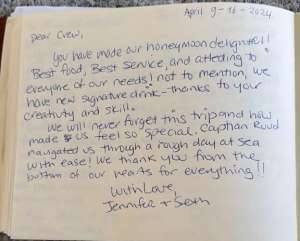 April 9-16-2024
Dear Crew,
You have made our honeymoon delightful!
Best food, Best service, and attending to
everyone of our needs! not to mention, we
have new signature drink - thanks to your
creativity and skill.
We will never forget this trip and how
made us feel so special. Captian Ruud
navigated us through a rough day at sea
with ease! We thank you from the
bottom of our hearts for everything!!
With Love,
Jennifer + Sean